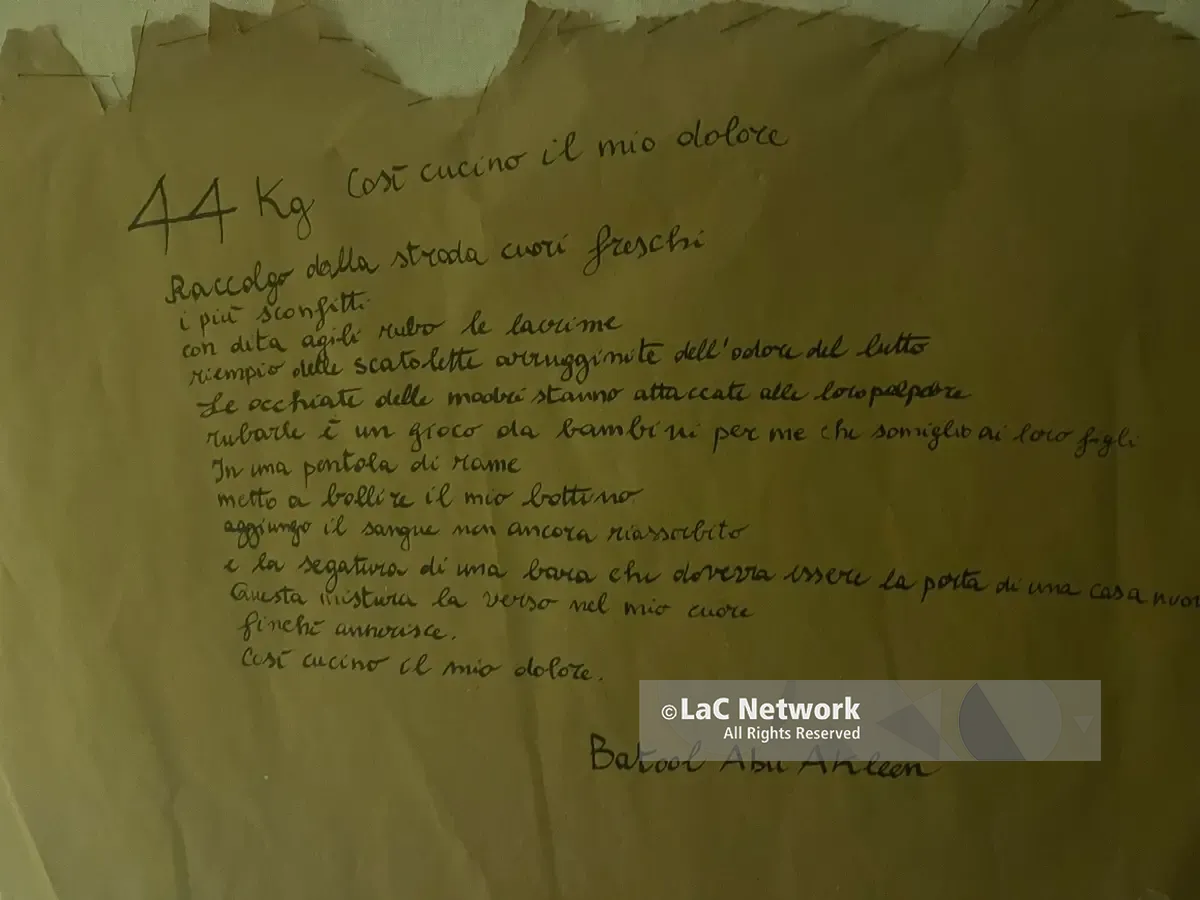 44 Kg Così cucino il mio dolore
Raccolgo dalla strada cuori freschi
i più sconfitti
con dita agili rubo le lacrime
riempio delle scatolette arrugginite dell'odore del lutto
Le occhiate delle madri stanno attaccate alle loro palpebre
rubarle è un gioco da bambini per me che somiglio ai loro figli
In una pentola di rame
metto a bollire il mio bottino
aggiungo il sangue non ancora riassorbito
e la segatura di una bara che doveva essere la porta di una casa
Questa mistura la verso nel mio cuore
finchè annerisce.
Così cucino il mio dolore.
© LaC Network
All Rights Reserved
Batool Abu Akleen